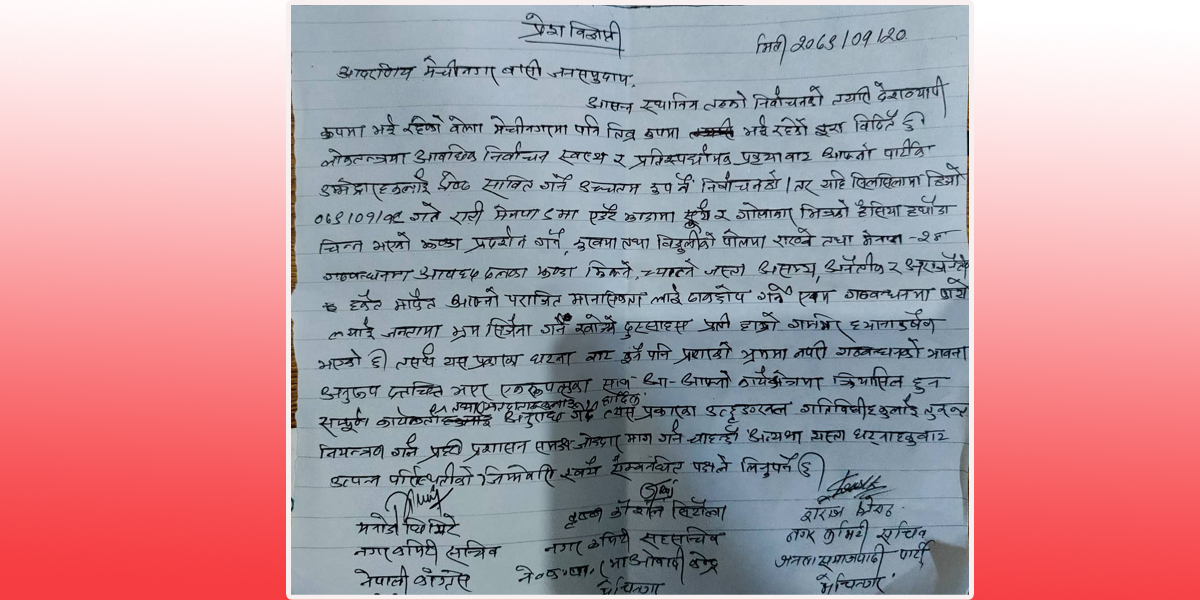 प्रेश विज्ञप्ती
मिती २०७९/०१/२०
आदरणिय मेचीनगर बासी जनसमुदाय,
आसन्न स्थानिय तहको निर्वाचनको तयारी देशव्यापी
रुपमा भई रहेको वेला मेचीनगरमा पनि तिव्र रुपमा भई रहेको कुरा विदितै छ।
लोकतन्त्रमा आवधिक निर्वाचन स्वस्थ र प्रतिस्पर्धात्मक प्रकृयाबाट आफ्नो पार्टीका
उम्मेद्वारहरुलाई श्रेष्ठ सावित गर्ने उच्चतम रुप नै निर्वाचन हो। तर यहि सिलसिलामा हिजो
०७९/०१/१९ गते राती मेनपा ८ मा एउटै झण्डामा सूर्य र गोलाकार भित्रको हँसिया हथौडा
चिन्ह भएको झण्डा प्रदर्शन गर्ने, रुखमा तथा विजुलीको पोलमा राख्ने तथा मेनपा-२ मा
गठबन्धनमा आवद्ध दलका झण्डा झिक्ने, च्यात्ने जस्ता असभ्य, अनैतीक र अराजनैतिक
हर्कत मार्फत आफ्नो पराजित मानसिकता लाई ढाकछोप गर्ने एवम गठबन्धनमा
ल्याई जनतामा भ्रम सिर्जना गर्न खोज्ने दुस्साहस प्रती हाम्रो गम्भिर ध्यानाकर्षण
भएको छ। तसर्थ यस प्रकारका घटना बाट कुनै पनि प्रकारको भ्रममा नपरी गठबन्धनको भावना
अनुरुप दत्तचित्त भएर एकरुपताका साथ आ-आफ्नो कार्यक्षेत्रमा क्रियासिल हुन
सम्पूर्ण कार्यकर्ता तथा मतदाताहरुलाई हार्दिक अनुरोध गर्दै त्यस प्रकारका उदण्ड गतिविधीहरुलाई तुरुन्त
नियन्त्रण गर्न प्रहरी प्रशासन समक्ष जोडदार माग गर्न चाहन्छौ अन्यथा यस्ता घटनाहरुबाट
उत्पन्न परिस्थितीको जिम्मेवारी स्वयं सम्बन्धित पक्षले लिनुपर्नेछ।
मनोज घिमिरे
नगर कमिटी सचिव
नेपाली काँग्रेस
कृष्ण कौशल सिटौला
नगर कमिटी सहसचिव
ने.क.पा. (माओवादी केन्द्र
मेचिनगर
नगर कमिटी सचिव
जनता समाजवादी पार्टी
मेचिनगर